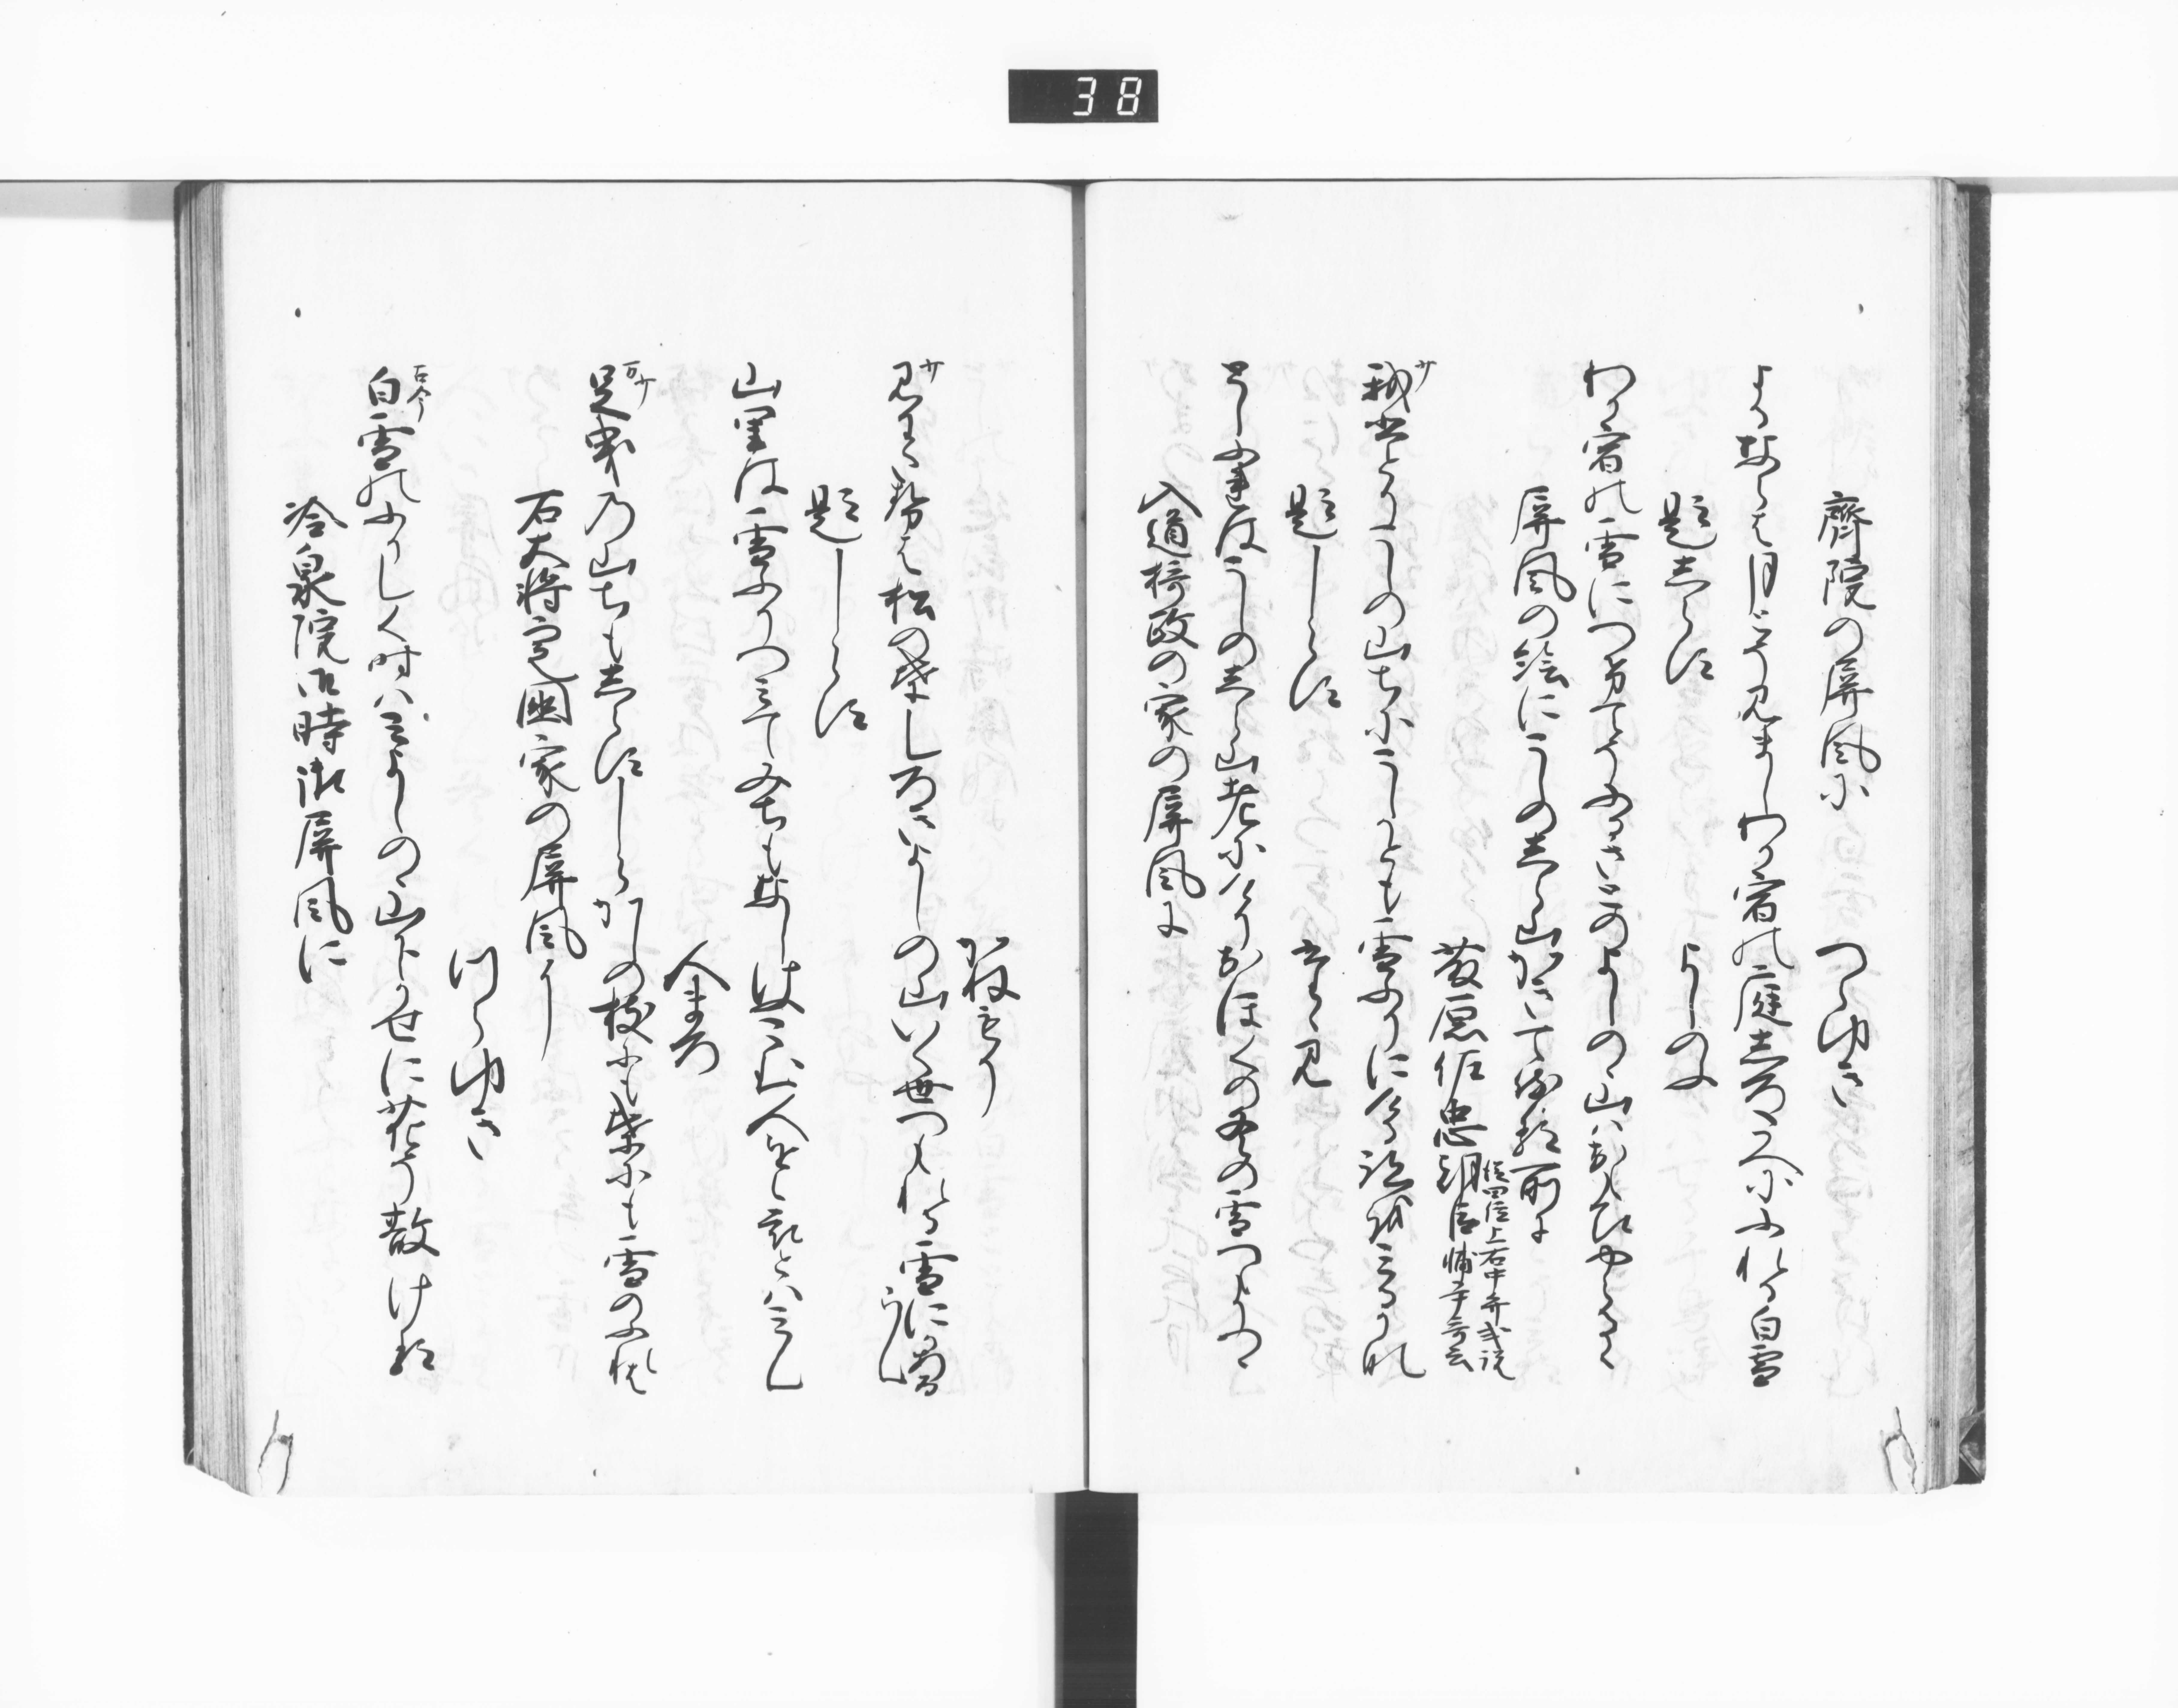 38
齋院の屏風に
つらゆき
よるならは月とそ見ましわか宿の庭しろたへにふれる白雪
題しらす
よしのふ
わか宿の雪につけてそふるさとのよしのゝ山はおもひやらるゝ
屏風の絵にこしのしら山かきて侍ける所に
藤原佐忠朝臣
従四位上右中弁或説
サ
我ひとりこしの山ちにこしかとも雪ふりにける跡をみるかな
題しらす
たゝみ
としふれはこしのしら山老にけりおほくの冬の雪つもりつゝ
入道摂政の家の屏風に
かねもり
サ
見わたせは松の葉しろきよしの山いく世つもれる雪にかある
らん
題しらす
山里は雪ふりつみてみちもなしけふこん人をあはれとはみん
人まろ
足曳乃山ちもしらすしらかしの枝にも葉にも雪のふれゝは
右大将定国家の屏風に
つらゆき
古今
白雪のふりしく時はみよしのゝ山下かせに花そ散ける
冷泉院御時御屏風に